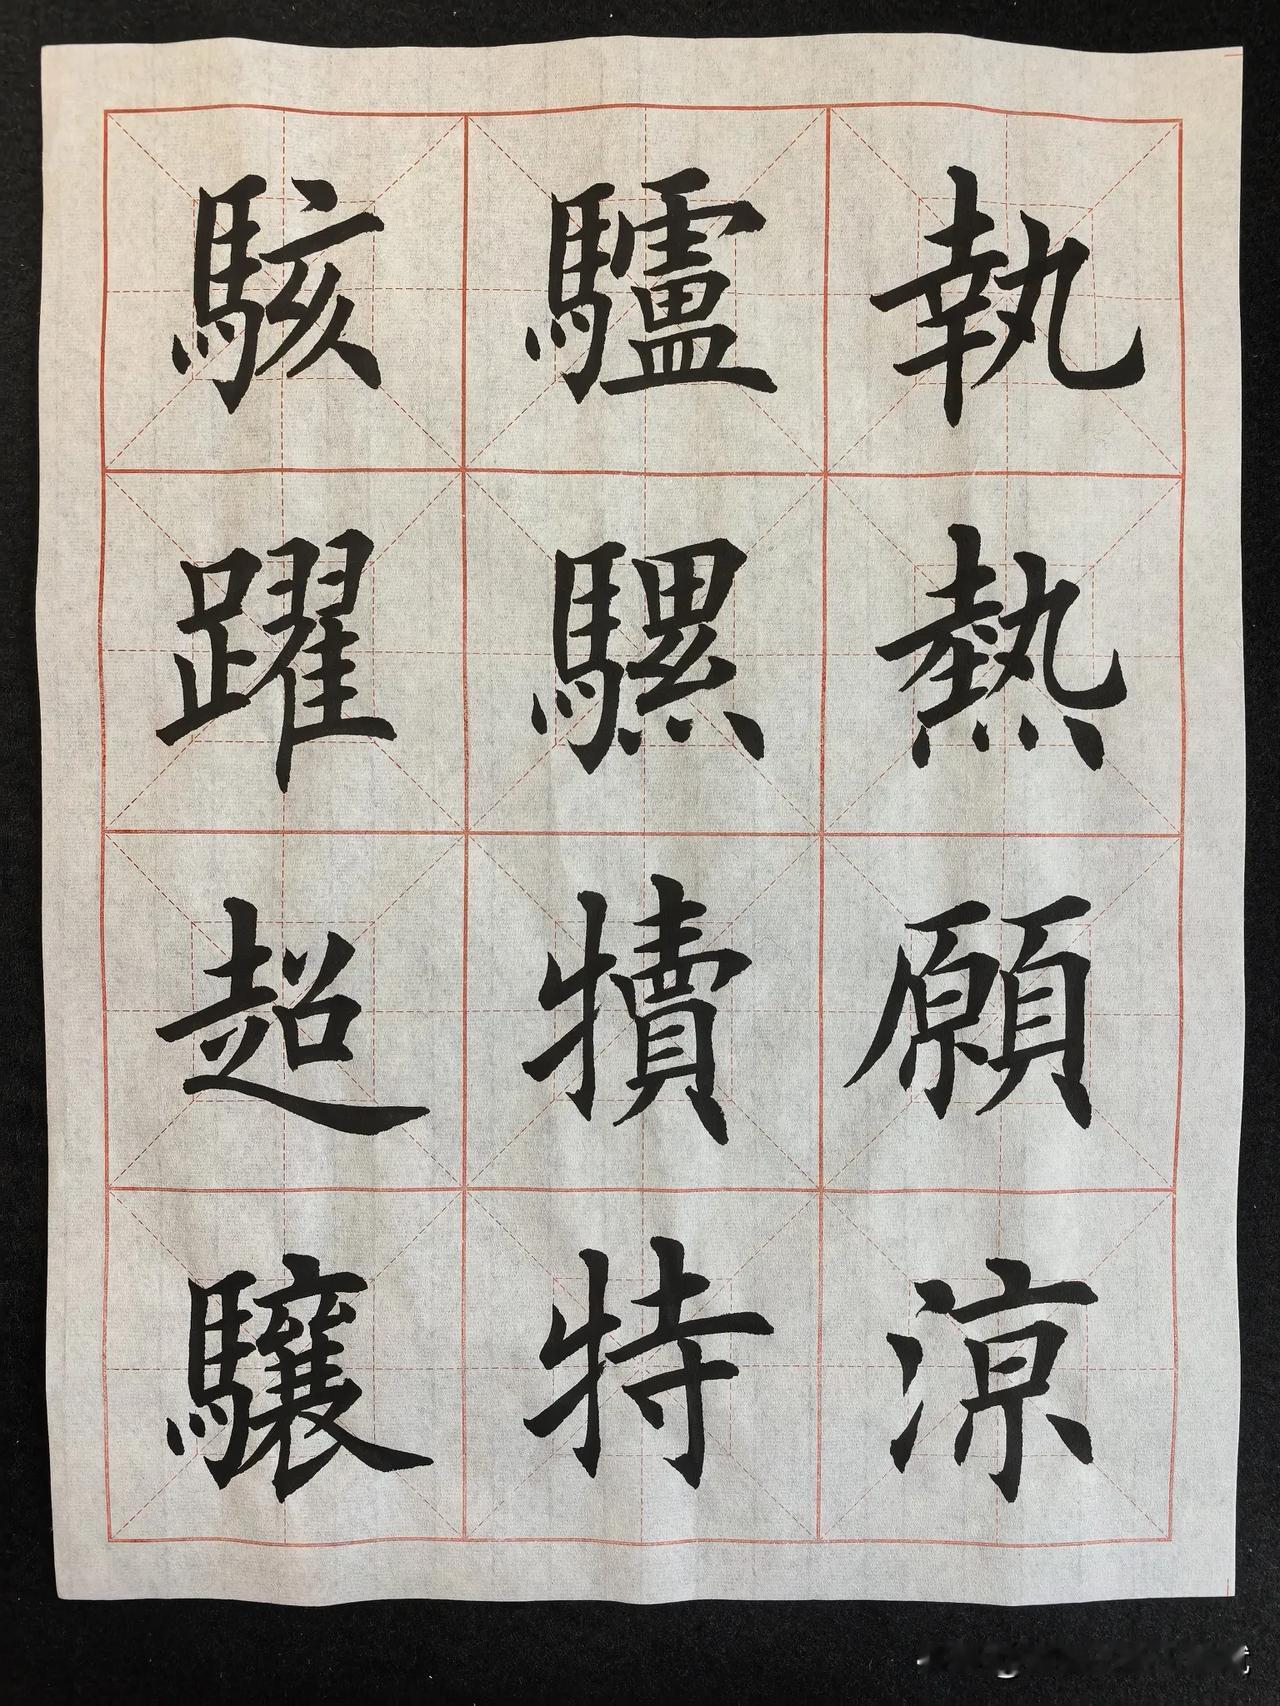 執熱願涼
驢騾犢特
駭躍超驤